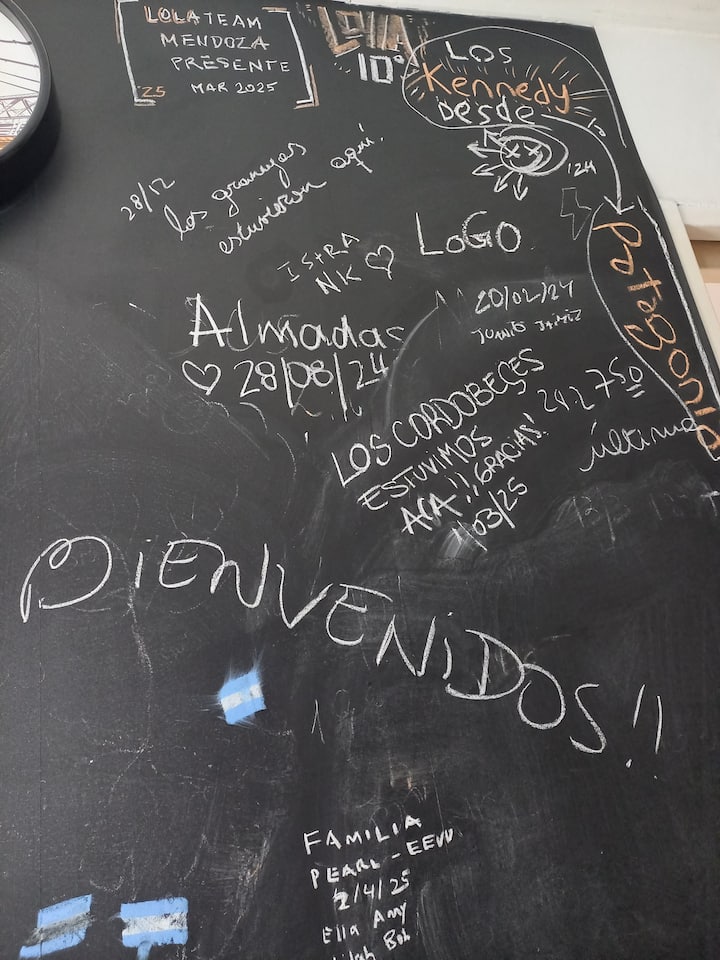 LOLATEAM
MENDOZA
PRESENTE
'25 MAR 2025
LOLLA
10°
LOS
Kennedy
DESDE
Patagonia
'24
28/12
los granujas
estuvieron aquí.
ISTRA
NK
LOGO
Almadas
28/08/24
20/02/24
LOS CORDOBECES
ESTUVIMOS
ACA!! GRACIAS!
03/25
última
BIENVENIDOS!!
FAMILIA
PEARL - EEUU
2/4/25
Ella Amy
Lilah Bob